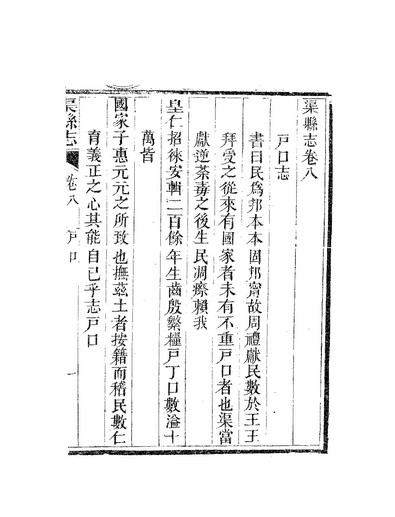 渠縣志卷八
戸口志
書曰民爲邦本本固邦甯故周禮獻民數於王王
拜受之從來有國家者未有不重戸口者也渠當
獻逆荼毒之後生民凋瘵賴我
皇仁招徠安輯二百餘年生齒殷繁糧戸丁口數溢十
萬皆
國家子惠元元之所致也撫茲土者按籍而稽民數仁
育義正之心其能自已乎志戸口
渠縣志 卷八 戸口 一